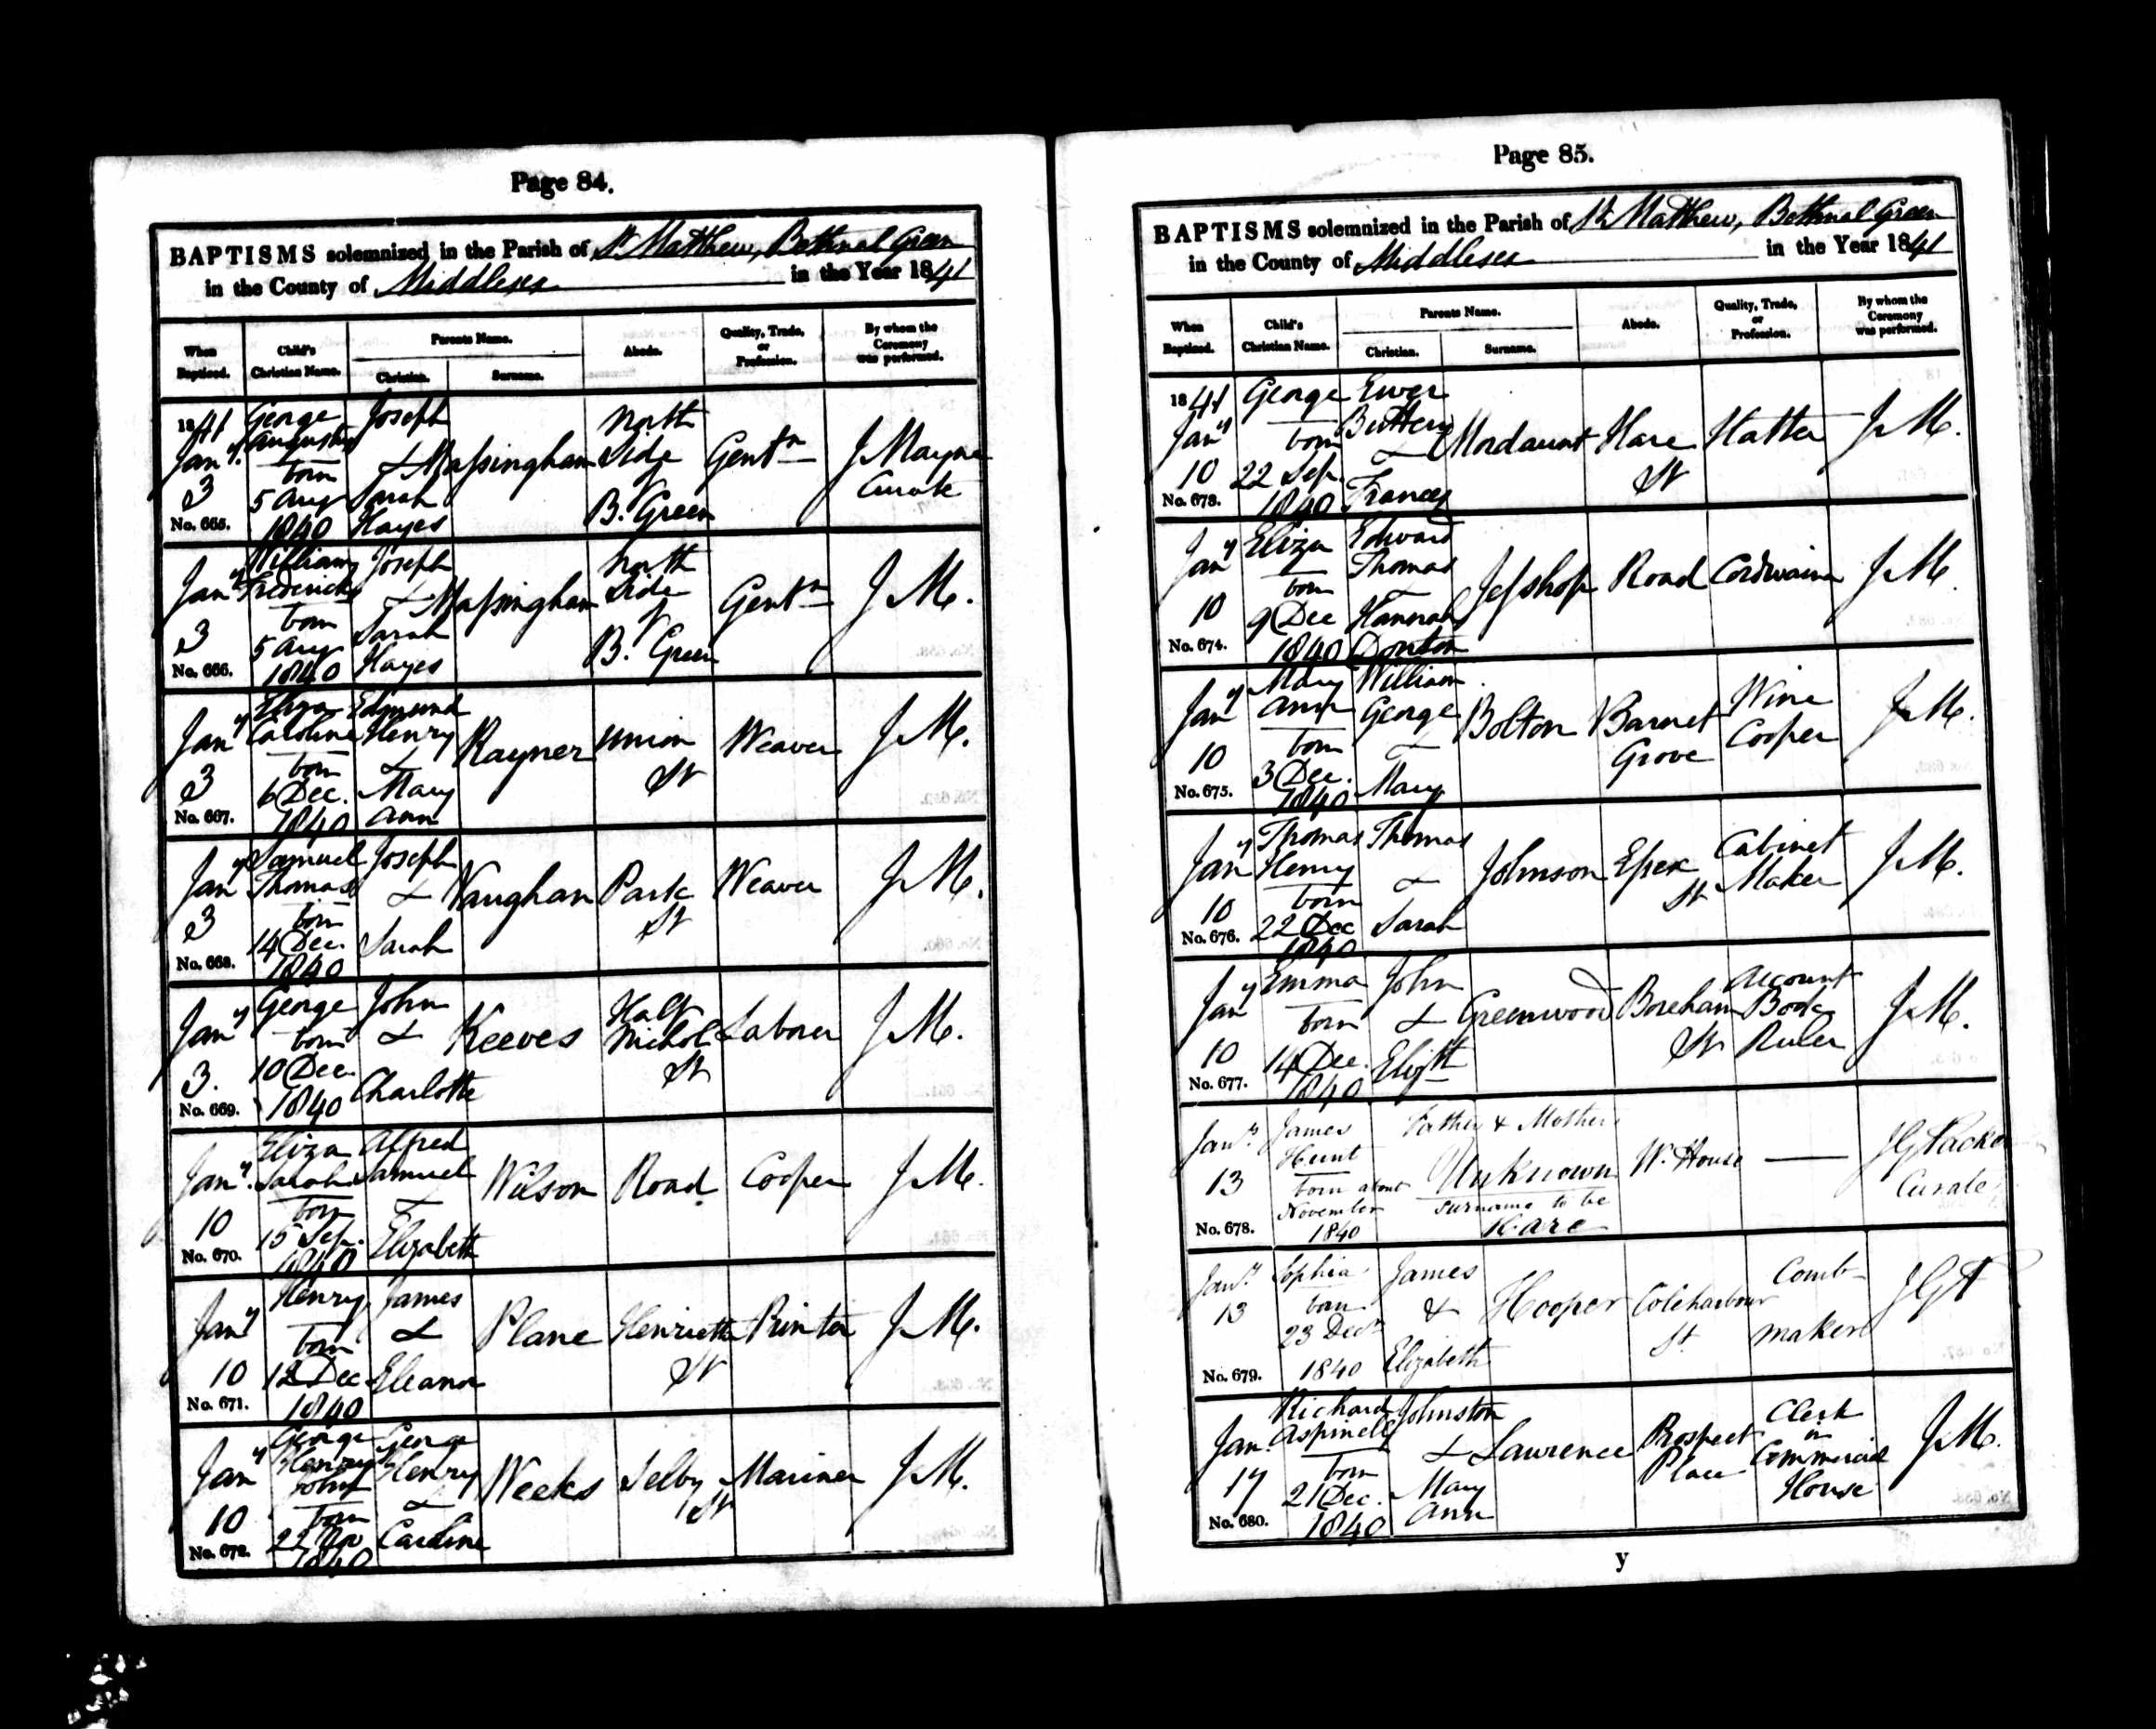 Page 84.
BAPTISMS solemnized in the Parish of St Matthew, Bethnal Green
in the County of Middlesex in the Year 1841
When Baptized.
Child's Christian Name.
Parents Name.
Christian.
Surname.
Abode.
Quality, Trade, or Profession.
By whom the Ceremony was performed.
1841 Jany. 3 No. 665.
George Augustus born 5 Aug 1840
Joseph & Sarah Hayes
Massingham
North Side of B. Green
Gentn
J Mayne Curate
Jany 3 No. 666.
William Frederick born 5 Aug 1840
Joseph & Sarah Hayes
Massingham
North Side of B. Green
Gentn
J M.
Jany 3 No. 667.
Eliza Caroline born 6 Dec. 1840
Edmund Henry & Mary Ann
Rayner
Union St
Weaver
J M.
Jany 3 No. 668.
Samuel Thomas born 14 Dec. 1840
Joseph & Sarah
Vaughan
Park St
Weaver
J M.
Jany 3. No. 669.
George born 10 Dec. 1840
John & Charlotte
Keeves
Half Nichol St
Laborer
J M.
Jany. 10 No. 670.
Eliza Sarah born 15 Sep. 1840
Alfred Samuel & Elizabeth
Wilson
Road
Cooper
J M.
Jany 10 No. 671.
Henry born 12 Dec 1840
James & Eleanor
Plane
Henrietta St
Printer
J M.
Jany 10 No. 672.
George Henry John born 22 Nov 1840
George Henry & Caroline
Weeks
Selby St
Mariner
J M.
Page 85.
BAPTISMS solemnized in the Parish of St Matthew, Bethnal Green
in the County of Middlesex in the Year 1841
When Baptized.
Child's Christian Name.
Parents Name.
Christian.
Surname.
Abode.
Quality, Trade, or Profession.
By whom the Ceremony was performed.
1841 Jany 10 No. 673.
George born 22 Sep. 1840
Ewer & Frances
Mordaunt
Hare St
Hatter
J M.
Jany 10 No. 674.
Eliza born 9 Dec 1840
Edward Thomas & Hannah
Jesshop
Road
Cordwainer
J M.
Jany 10 No. 675.
Mary Ann born 3 Dec. 1840
William George & Mary
Bolton
Barnet Grove
Wine Cooper
J M.
Jany 10 No. 676.
Thomas Henry born 22 Dec 1840
Thomas & Sarah
Johnson
Essex St
Cabinet Maker
J M.
Jany 10 No. 677.
Emma born 14 Dec. 1840
John & Elizth
Greenwood
Boreham St
Account Book Ruler
J M.
Jany 13 No. 678.
James Hunt born about November 1840
Father & Mother Unknown surname to be Hare
W. House
J G Packer Curate
Jany 13 No. 679.
Sophia born 23 Decr 1840
James & Elizabeth
Hooper
Coleharbour St
Comb-maker
J G P
Jany. 17 No. 680.
Richard Aspinell born 21 Dec. 1840
Johnston & Mary Ann
Lawrence
Prospect Place
Clerk in Commercial House
J M.
y